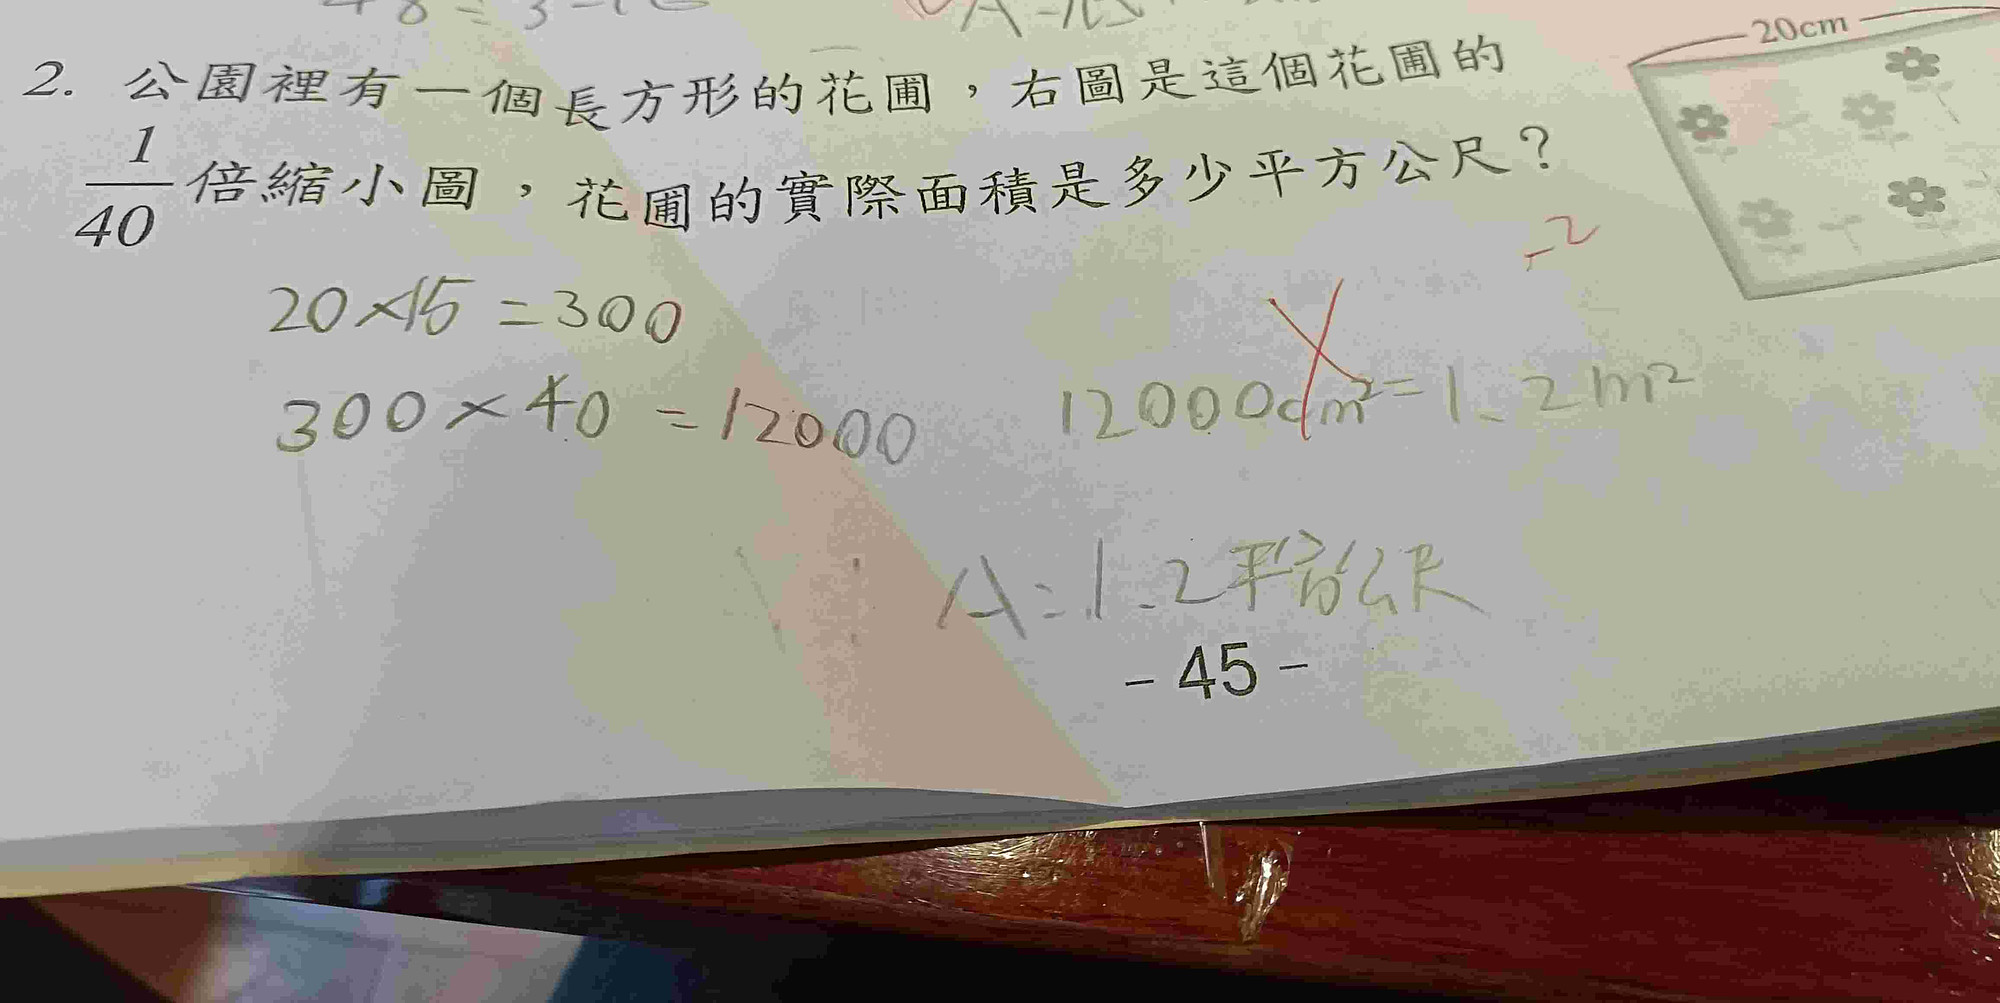 20cm
2. 公園裡有一個長方形的花圃，右圖是這個花圃的
1/40 倍縮小圖，花圃的實際面積是多少平方公尺？
-2
20×15=300
300×40=12000
12000cm²=1.2m²
A=1.2平方公尺
-45-